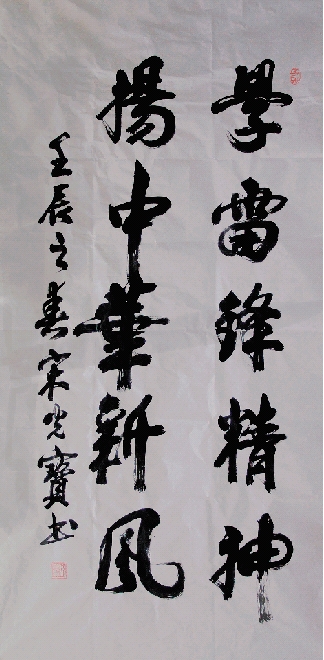 學雷鋒精神
揚中華新風
壬辰之春宋光寶书